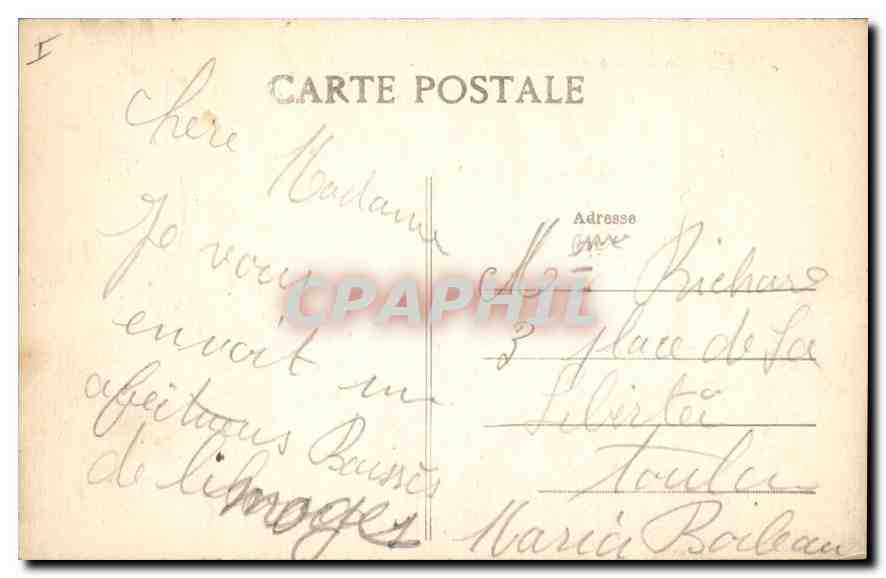 I
CARTE POSTALE
chere
Madame
Je vous
envoit un
afectuous Baissés
de limoges
Adresse
Mme Richard
3 place de La
Liberté
toulon
Maria Boileau
CPAPHIL